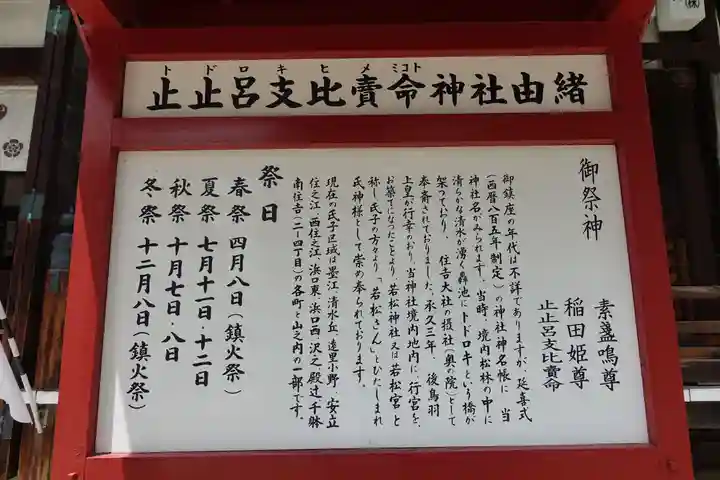 トドロキヒメミコト
止止呂支比賣命神社由緒
御祭神
素盞嗚尊
稲田姫尊
止止呂支比賣命
御鎮座の年代は不詳でありますが、延喜式
(西暦八百五年制定)の神社神名帳に、当
神社名がみられます。当時、境内松林の中に
清らかな清水が湧く轟池にトドロキという橋が
架っており、住吉大社の摂社(奥の院)として
奉斎されておりました。承久三年、後鳥羽
上皇が行幸のおり、当神社境内地内に、行宮を
お築てになったことより、若松神社又は若松宮と
称し氏子の方々より、「若松さん」としたしまれ
氏神様として崇め奉られております。
現在の氏子区域は墨江、清水丘、遠里小野、安立
住之江、西住之江、浜口東、浜口西、沢之、殿辻、千躰
南住吉(二ー四丁目)の各町と山之内の一部です。
祭日
春祭 四月八日(鎮火祭)
夏祭 七月十一日・十二日
秋祭 十月七日・八日
冬祭 十二月八日(鎮火祭)